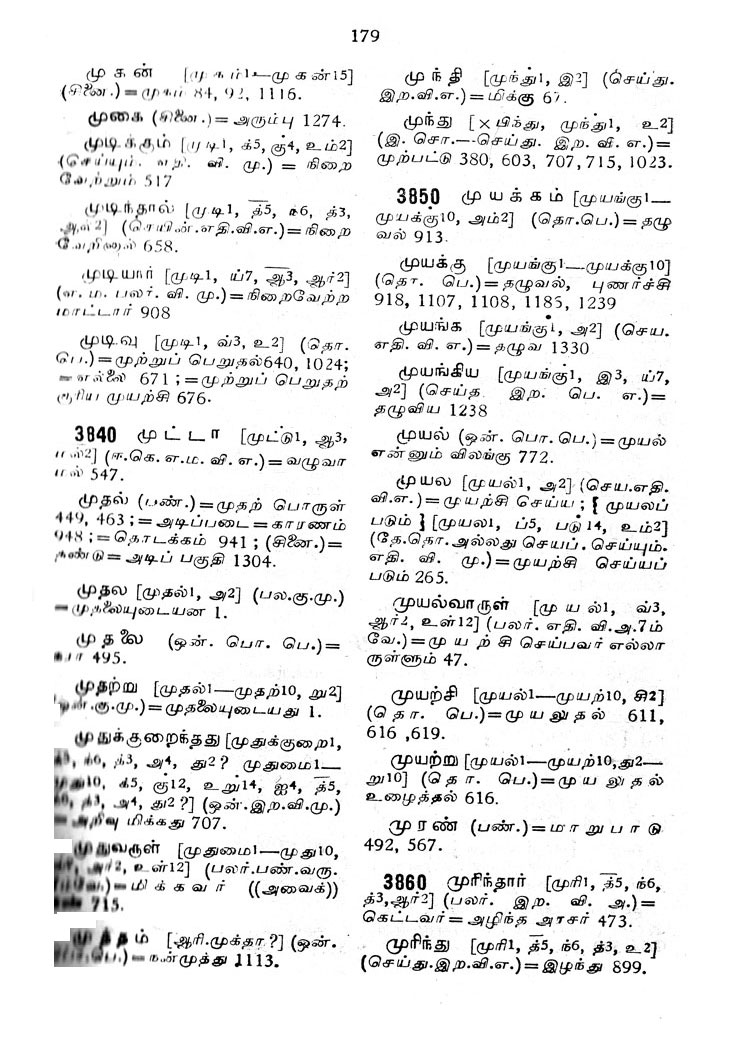 179
முகன் [முகம்1—முகன்15]
(சினை.)=முகம் 84, 92, 1116.
முகை (சினை.)=அரும்பு 1274.
முடிக்கும் [முடி1, க்5, கு4, உம்2]
(செய்யும். எதி. வி. மு.)=நிறை
வேற்றும் 517
முடிந்தால் [முடி1, த்5, ந்6, த்3,
ஆல்2] (செயின்.எதி.வி.எ.)=நிறை
வேறினால் 658.
முடியார் [முடி1, ய்7, ஆ3, ஆர்2]
(எ. ம. பலர். வி. மு.)=நிறைவேற்ற
மாட்டார் 908
முடிவு [முடி1, வ்3, உ2] (தொ.
பெ.)=முற்றுப் பெறுதல்640, 1024;
=எல்லை 671 ;=முற்றுப் பெறுதற்
குரிய முயற்சி 676.
3840 முட்டா [முட்டு1, ஆ3,
மல்2] (ஈ.கெ.எ.ம.வி.எ.)=வழுவா
மல் 547.
முதல் (பண்.)=முதற் பொருள்
449, 463 ;=அடிப்படை=காரணம்
948 ;=தொடக்கம் 941 ; (சினை.)=
தண்டு=அடிப் பகுதி 1304.
முதல [முதல்1, அ2] (பல.கு.மு.)
=முதலையுடையன 1.
முதலை (ஒன். பொ. பெ.)=
495.
முதற்று [முதல்1—முதற்10, று2]
(ஒன்.கு.மு.)=முதலையுடையது 1.
முதுக்குறைந்தது [முதுக்குறை1,
த்5, ந்6, த்3, அ4, து2? முதுமை1—
முது10, க்5, கு12, உறு14, ஐ4, த்5,
ந்6, த்3, அ4, து2?] (ஒன்.இற.வி.மு.)
=அறிவு மிக்கது 707.
முதுவருள் [முதுமை1—முது10,
வ்3, அர்2, உள்12] (பலர்.பண்.வரு.
=மிக்கவர் ((அவைக்))
715.
முத்தம் [ஆரி.முக்தா?] (ஒன்.
பொ.பெ.)=நன்முத்து 1113.
முந்தி [முந்து1, இ2] (செய்து.
இற.வி.எ.)=மிக்கு 67.
முந்து [×பிந்து, முந்து1, உ2]
(இ. சொ.—செய்து. இற. வி. எ.)=
முற்பட்டு 380, 603, 707,715, 1023.
3850 முயக்கம் [முயங்கு1—
முயக்கு10, அம்2] (தொ.பெ.)=தழு
வல் 913.
முயக்கு [முயங்கு1—முயக்கு10]
(தொ. பெ.)=தழுவல், புணர்ச்சி
918, 1107, 1108, 1185, 1239
முயங்க [முயங்கு1, அ2] (செய.
எதி. வி. எ.)=தழுவ 1330
முயங்கிய [முயங்கு1, இ3, ய்7,
அ2] (செய்த இற. பெ. எ.)=
தழுவிய 1238
முயல் (ஒன். பொ. பெ.)=முயல்
என்னும் விலங்கு 772.
முயல [முயல்1, அ2] (செய.எதி.
வி.எ.)=முயற்சி செய்ய ; { முயலப்
படும் } [முயல1, ப்5, படு14, உம்2]
(தே.தொ.அல்லது செயப். செய்யும்.
எதி. வி. மு.)=முயற்சி செய்யப்
படும் 265.
முயல்வாருள் [முயல்1, வ்3,
ஆர்2, உள்12] (பலர். எதி. வி.அ.7ம்
வே.)=முயற்சி செய்பவர் எல்லா
ருள்ளும் 47.
முயற்சி [முயல்1—முயற்10, சி2]
(தொ. பெ.)=முயலுதல் 611,
616 ,619.
முயற்று [முயல்1—முயற்10,து2—
று10] (தொ. பெ.)=முயலுதல்
உழைத்தல் 616.
முரண் (பண்.)=மாறுபாடு
492, 567.
3860 முரிந்தார் [முரி1, த்5, ந்6,
த்3,ஆர்2] (பலர். இற. வி. அ.)=
கெட்டவர்=அழிந்த அரசர் 473.
முரிந்து [முரி1, த்5, ந்6, த்3, உ2]
(செய்து.இற.வி.எ.)=இழந்து 899.